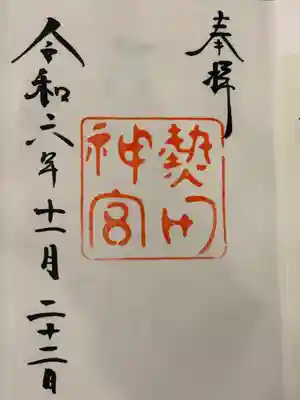 奉拝
熱田
神宮
令和六年十一月二十二日